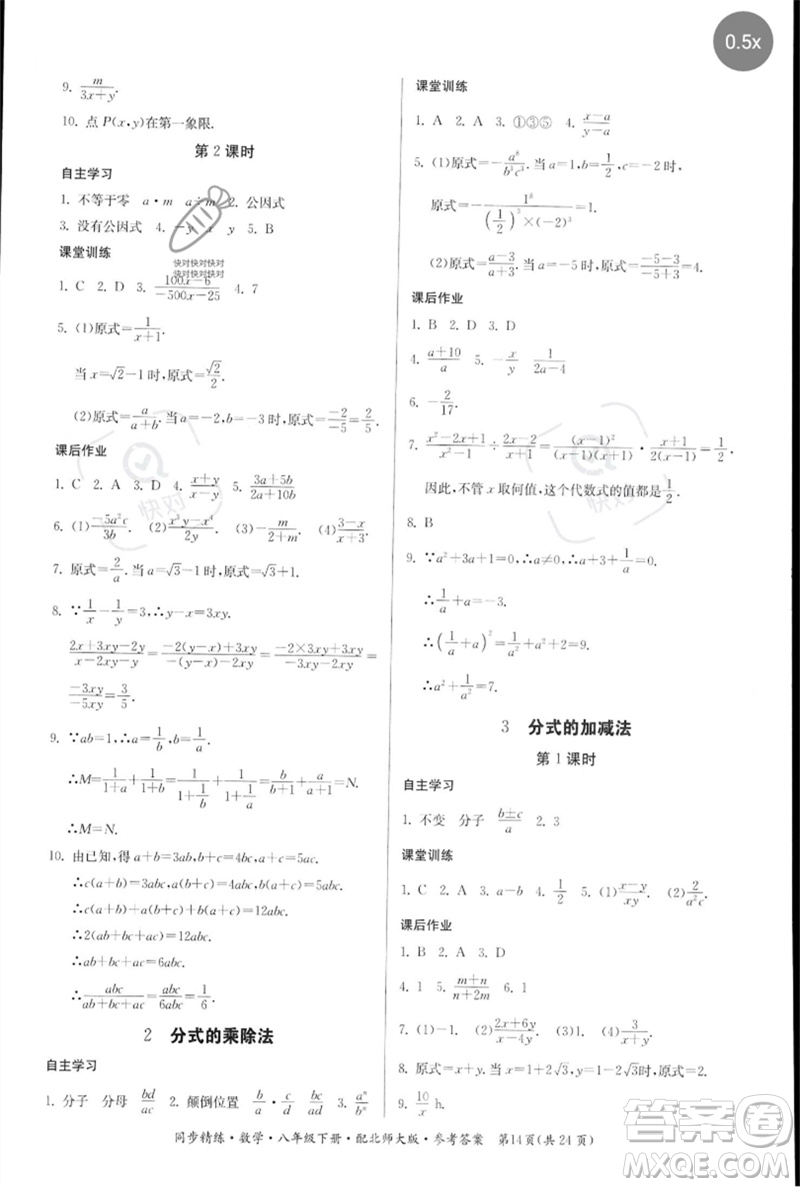 9. m/(3x+y).
10. 点P(x,y)在第一象限.
第2课时
自主学习
1. 不等于零 a·m a÷m 2. 公因式
3. 没有公因式 4. -y x y 5. B
课堂训练
1. C 2. D 3. (100x-6)/(-500x-25) 4. 7
5. (1)原式=1/(x+1).
当x=√2-1时,原式=√2/2.
(2)原式=a/(a+b).当a=-2,b=-3时,原式=(-2)/(-5)=2/5.
课后作业
1. C 2. A 3. D 4. (x+y)/(x-y) 5. (3a+5b)/(2a+10b)
6. (1)(-5a²c)/(3b) (2) (3)-m/(m+2) (4)(3-x)/(x+3)
7. 原式=2/a.当a=√3-1时,原式=√3+1.
8. ∵1/x-1/y=3,∴y-x=3xy.
(2x+3xy-2y)/(x-2xy-y)=(-2(y-x)+3xy)/(-(y-x)-2xy)=(-2×3xy+3xy)/(-3xy-2xy)=
(-3xy)/(-5xy)=3/5.
9. ∵ab=1,∴a=1/b,b=1/a.
∴M=1/(1+a)+1/(1+b)=1/(1+1/b)+1/(1+1/a)=b/(b+1)+a/(a+1)=N.
∴M=N.
10. 由已知,得a+b=3ab,b+c=4bc,a+c=5ac.
∴c(a+b)=3abc,a(b+c)=4abc,b(a+c)=5abc.
∴c(a+b)+a(b+c)+b(a+c)=12abc.
∴2(ab+bc+ac)=12abc.
∴ab+bc+ac=6abc.
∴abc/(ab+bc+ac)=abc/6abc=1/6.
2 分式的乘除法
自主学习
1. 分子 分母 bd/ac 2. 颠倒位置 b/a·d/c bd/ac 3. aⁿ/bⁿ
课堂训练
1. A 2. A 3. ①③⑤ 4. (x-a)/(y-a)
5. (1)原式=-a⁸/(b³c³).当a=1,b=1/2,c=-2时,
原式=-1⁸/((1/2)³×(-2)³)=1.
(2)原式=(a-3)/(a+3).当a=-5时,原式=(-5-3)/(-5+3)=4.
课后作业
1. B 2. D 3. D
4. (a+10)/a 5. -x/y 1/(2a-4)
6. -2/17.
7. (x²-2x+1)/(x²-1)÷(2x-2)/(x+1)=(x-1)²/((x+1)(x-1))·(x+1)/(2(x-1))=1/2,
因此,不管x取何值,这个代数式的值都是1/2.
8. B
9. ∵a²+3a+1=0,∴a+3+1/a=0.
∴1/a+a=-3.
∴(1/a+a)²=1/a²+a²+2=9.
∴a²+1/a²=7.
3 分式的加减法
第1课时
自主学习
1. 不变 分子 (b±c)/a 2. 3
课堂训练
1. C 2. A 3. a-b 4. 1/x 5. (1)(x-y)/xy. (2)2/a.
课后作业
1. B 2. A 3. D
4. 1 5. (m+n)/(n+2m) 6. 1
7. (1)-1. (2)(2x+6y)/(x-y).
8. 原式=x+2.当x=2√3时,原式=2+2√3.
9. 10/x h.
同步精练·数学·八年级下册·配北师大版·参考答案 第14页(共24页)
0.5x
快对快对快对
快对快对快对
快对
答案圈
MXQE.COM